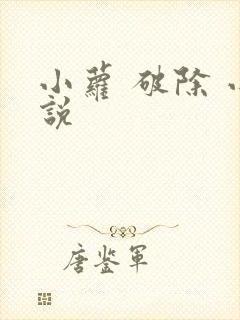 小蘿 破除 小
說
唐鉴军